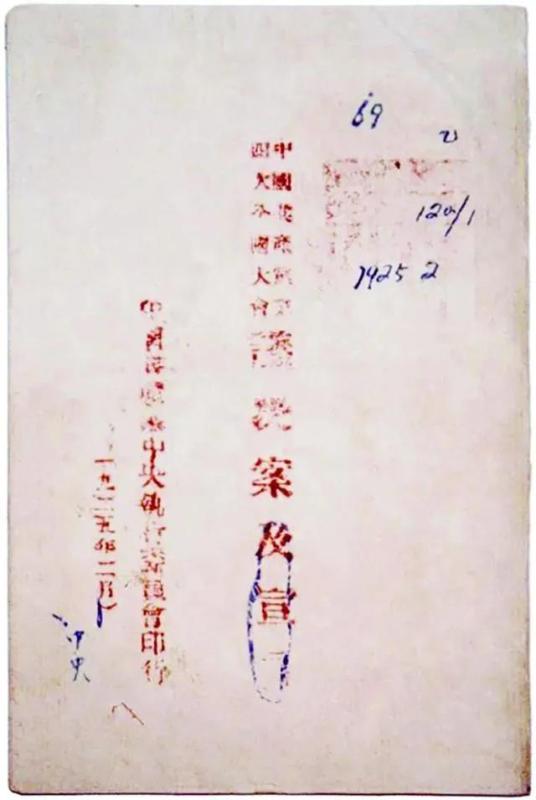 69
1925 2
中國共產黨第
四次全國大會
議決案及宣
中國共產黨中央執行委員會印行
一九二五年二月)
中央